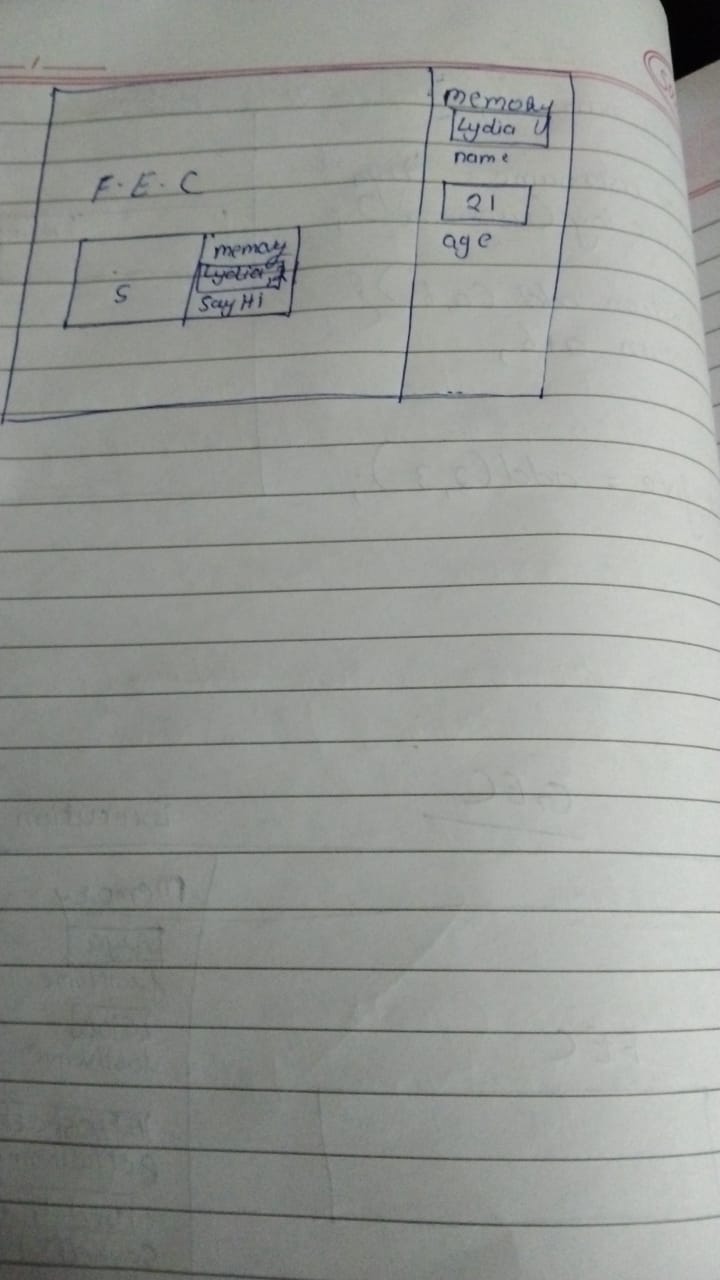 F.E.C
S
memory
Lydia
SayHi
memory
Lydia
name
21
age